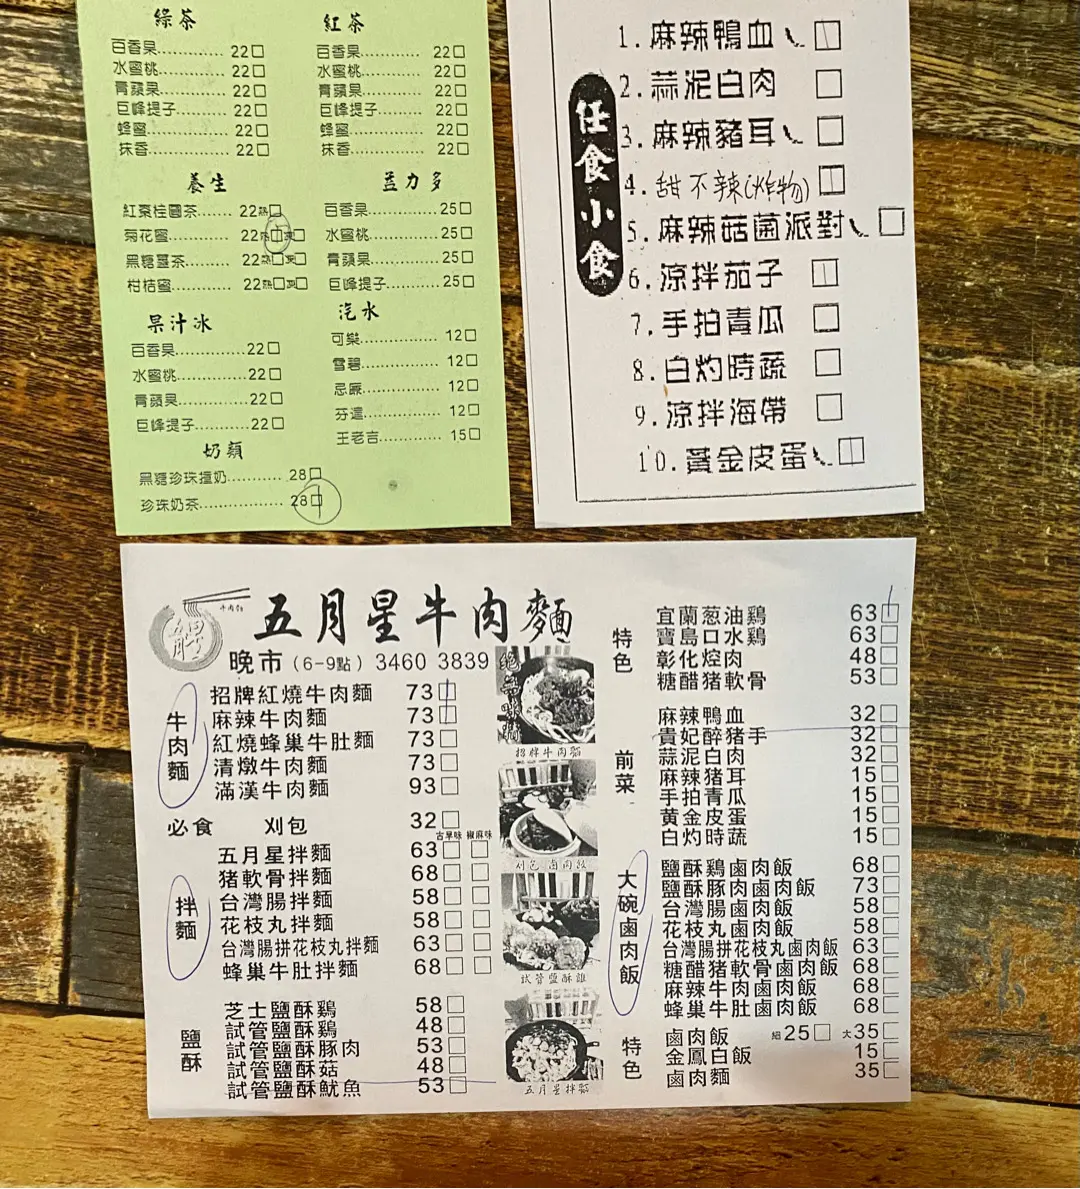 綠茶
百香果............ 22□
水蜜桃............ 22□
青蘋果............ 22□
巨峰提子......... 22□
蜂蜜............... 22□
抹香............... 22□
紅茶
百香果............ 22□
水蜜桃............ 22□
青蘋果............ 22□
巨峰提子......... 22□
蜂蜜............... 22□
抹香............... 22□
養生
紅棗桂圓茶...... 22熱□
菊花蜜............ 22熱□凍□
黑糖薑茶......... 22熱□凍□
柑桔蜜............ 22熱□凍□
益力多
百香果............ 25□
水蜜桃............ 25□
青蘋果............ 25□
巨峰提子......... 25□
果汁冰
百香果............ 22□
水蜜桃............ 22□
青蘋果............ 22□
巨峰提子......... 22□
汽水
可樂............... 12□
雪碧............... 12□
忌廉............... 12□
芬達............... 12□
王老吉............ 15□
奶類
黑糖珍珠撞奶......... 28□
珍珠奶茶............... 28□
任食小食
1. 麻辣鴨血 □
2. 蒜泥白肉 □
3. 麻辣豬耳 □
4. 甜不辣(炸物) □
5. 麻辣菇菌派對 □
6. 涼拌茄子 □
7. 手拍青瓜 □
8. 白灼時蔬 □
9. 涼拌海帶 □
10. 黃金皮蛋 □
五月星牛肉麵
晚市 (6-9點) 3460 3839
牛肉麵
招牌紅燒牛肉麵 73□
麻辣牛肉麵 73□
紅燒蜂巢牛肚麵 73□
清燉牛肉麵 73□
滿漢牛肉麵 93□
必食 刈包 32□
古早味 椒麻味
拌麵
五月星拌麵 63□ □
猪軟骨拌麵 68□ □
台灣腸拌麵 58□ □
花枝丸拌麵 58□ □
台灣腸拼花枝丸拌麵 63□ □
蜂巢牛肚拌麵 68□ □
鹽酥
芝士鹽酥鷄 58□
試管鹽酥鷄 48□
試管鹽酥豚肉 53□
試管鹽酥菇 48□
試管鹽酥魷魚 53□
招牌牛肉麵
刈包 鹵肉飯
試管鹽酥雞
五月星拌麵
特色
宜蘭葱油鷄 63□
寶島口水鷄 63□
彰化焢肉 48□
糖醋猪軟骨 53□
前菜
麻辣鴨血 32□
貴妃醉猪手 32□
蒜泥白肉 32□
麻辣猪耳 15□
手拍青瓜 15□
黄金皮蛋 15□
白灼時蔬 15□
大碗鹵肉飯
鹽酥鷄鹵肉飯 68□
鹽酥豚肉鹵肉飯 73□
台灣腸鹵肉飯 58□
花枝丸鹵肉飯 58□
台灣腸拼花枝丸鹵肉飯 63□
糖醋猪軟骨鹵肉飯 68□
麻辣牛肉鹵肉飯 68□
蜂巢牛肚鹵肉飯 68□
特色
鹵肉飯 細25□ 大35□
金鳳白飯 15□
鹵肉麵 35□